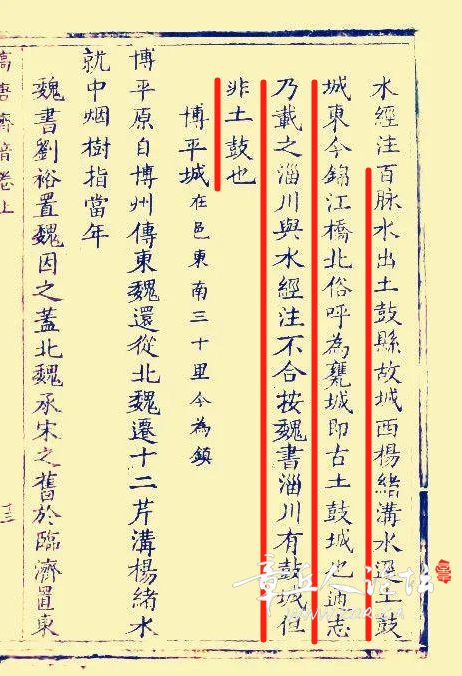 水經注百脉水出土鼓縣故城西楊緒溝水逕土鼓
城東今錦江橋北俗呼為甕城即古土鼓城也通志
乃載之淄川與水經注不合按魏書淄川有鼓城但
非土鼓也
博平城在邑東南三十里今為鎮
博平原自博州傳東魏還從北魏遷十二芹溝楊緒水
就中烟樹指當年
魏書劉裕置魏因之蓋北魏承宋之舊於臨濟置東
高唐齊音卷上
十三
章丘人论坛